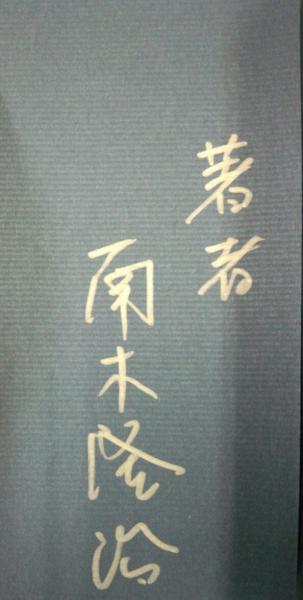 著者
南木隆治